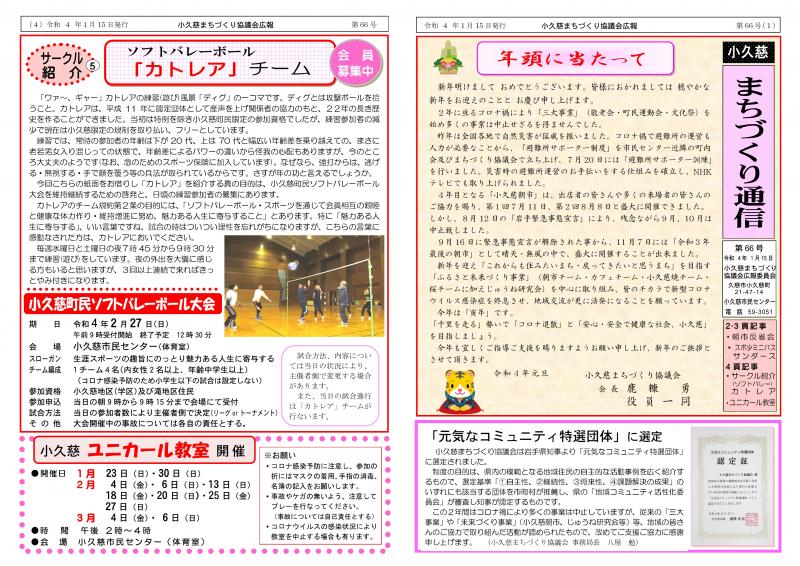 (4) 令和 4 年1月15日発行
小久慈まちづくり協議会広報
第66号
サークル
紹介⑤
ソフトバレーボール
「カトレア」チーム
会員
募集中
「ワァ～、ギャー」カトレアの練習(遊び)風景「ディグ」の一コマです。ディグとは攻撃ボールを拾
うこと。カトレアは、平成 11 年に認定団体として産声を上げ関係者の協力のもと、22年の長き歴
史を作ることができました。当初は特例を除き小久慈町民限定の参加資格でしたが、練習参加者の減
少で現在は小久慈限定の規制を取り払い、フリーとしています。
練習では、常時の参加者の年齢は下が 20 代、上は 70 代と幅広い年齢差を乗り越えての、まさに
老若男女入り混じっての状態で、年齢差によるパワーの違いから怪我の心配もありますが、今のとこ
ろ大丈夫のようです(なお、念のためのスポーツ保険に加入しています)。なぜなら、強打からは、逃げ
る・無視する・手で顔を覆う等の兵法が取られているからです。さすが年の功と言えるでしょうか。
今回こちらの紙面をお借りし「カトレア」を紹介する真の目的は、小久慈町民ソフトバレーボール
大会を維持継続するための啓発と、日頃の練習参加者の募集にあります。
カトレアのチーム規約第2条の目的には、「ソフトバレーボール・スポーツを通じて会員相互の親睦
と健康な体力作り・維持増進に努め、魅力ある人生に寄与すること」とあります。特に「魅力ある人
生に寄与する」、いい言葉ですね。試合の時はついつい理性を忘れがちになりますが、こちらの言葉に
感動なされた方は、カトレアにおいでください。
毎週水曜日と土曜日の夜7時45分から9時30分
まで練習(遊び)をしています。夜の外出を大儀に感じ
る方もいると思いますが、3回以上連続で来ればきっ
とやみ付きになります。
小久慈町民ソフトバレーボール大会
期 日 令和4年2月27日(日)
午前9時受付開始 終了予定 12時30分
会 場 小久慈市民センター(体育室)
スローガン 生涯スポーツの趣旨にのっとり魅力ある人生に寄与する
チーム編成 1チーム4名(内女性2名以上、年齢中学生以上)
(コロナ感染予防のため小学生以下の試合は設定しない)
参加資格 小久慈地区(学区)及び滝地区住民
参加申込 当日の朝9時から9時15分まで会場にて受付
試合方法 当日の参加者数により主催者側で決定(リーグorトーナメント)
その他 大会開催中の事故については各自の責任とする。
試合方法、内容につい
ては当日の状況により、
主催者側で変更する場合
があります。
また、当日の試合進行
は「カトレア」チームが
行ないます。
小久慈 ユニカール教室 開催
●開催日 1月 23日(日)・30日(日)
2月 4日(金)・ 6日(日)・13日(日)
18日(金)・20日(日)・25日(金)
27日(日)
3月 4日(金)・ 6日(日)
●時 間 午後 2時～4時
●会 場 小久慈市民センター(体育室)
※お願い
・コロナ感染予防に注意し、参加の
折にはマスクの着用、手指の消毒、
名簿の記入をお願いします。
・事故やケガの無いよう、注意して
プレーを行なってください。
(事故については自己責任とする)
・コロナウイルスの感染状況により
教室を中止する場合も有ります。
令和 4 年1月15日発行
小久慈まちづくり協議会広報
第66号(1)
年頭に当たって
新年明けまして おめでとうございます。皆様におかれましては 穏やかな
新年をお迎えのことと お慶び申し上げます。
2年に亘るコロナ禍により「三大事業」(敬老会・町民運動会・文化祭)を
始め多くの事業は中止せざるを得ませんでした。
昨年は全国各地で自然災害が猛威を振いました。コロナ禍で避難所の運営も
人力が必要なことから、「避難所サポーター制度」を市民センター近隣の町内
会及びまちづくり協議会で立ち上げ、7月20日には「避難所サポーター訓練」
を行いました。災害時の避難所運営のお手伝いをする仕組みを確立し、NHK
テレビでも取り上げられました。
4年目となる「小久慈朝市」は、出店者の皆さんや多くの来場者の皆さんの
ご協力を賜り、第1回7月11日、第2回8月8日と盛大に開催できました。
しかし、8月12日の「岩手緊急事態宣言」により、残念ながら9月、10月は
中止致しました。
9月16日に緊急事態宣言が解除された事から、11月7日には「令和3年
最後の朝市」として晴天・無風の中で、盛大に開催することが出来ました。
新年を迎え「これからも住みたいまち・戻ってきたいと思うまち」を目指す
「ふるさと未来づくり事業」(朝市チーム・カフェチーム・小久慈焼チーム・
桜チームに加えじゅうね研究会)を中心に取り組み、皆のチカラで新型コロナ
ウイルス感染症を終息させ、地域交流が更に活発になることを願っています。
今年は「寅年」です。
「千里を走る」勢いで「コロナ退散」と「安心・安全で健康な社会、小久慈」
を目指しましょう。
今年も宜しくご指導ご支援を賜りますようお願い申し上げ、新年のご挨拶と
させて頂きます。
令和4年元旦
小久慈まちづくり協議会
会長 鹿糠 勇
役員一同
小久慈
まちづくり通信
第66号
令和 4 年 1月15日
小久慈まちづくり
協議会広報委員会
久慈市小久慈町
21-47-14
小久慈市民センター
電 話 59-3051
2・3頁記事
・朝市反省会
・スポ少ミニバス
サンダース
4頁記事
・サークル紹介
(ソフトバレー)
カトレア
・ユニカール教室
「元気なコミュニティ特選団体」に選定
小久慈まちづくり協議会は岩手県知事より「元気なコミュニティ特選団体」
に選定されました。
制度の目的は、県内の模範となる地域住民の自主的な活動事例を広く紹介す
るもので、選定基準「①自主性、②継続性、③将来性、④課題解決の成果」の
いずれにも該当する団体を市町村が推薦し、県の「地域コミュニティ活性化委
員会」が審査し知事が認定するものです。
この2年間はコロナ禍により多くの事業は中止していますが、従来の「三大
事業」や「未来づくり事業」(小久慈朝市、じゅうね研究会等)等、地域の皆さ
んのご協力で取り組んだ活動が認められたもので、改めてご支援ご協力に感謝
申し上げます。 (小久慈まちづくり協議会 事務局長 八屋 勉)
元気なコミュニティ特選団体
認定証